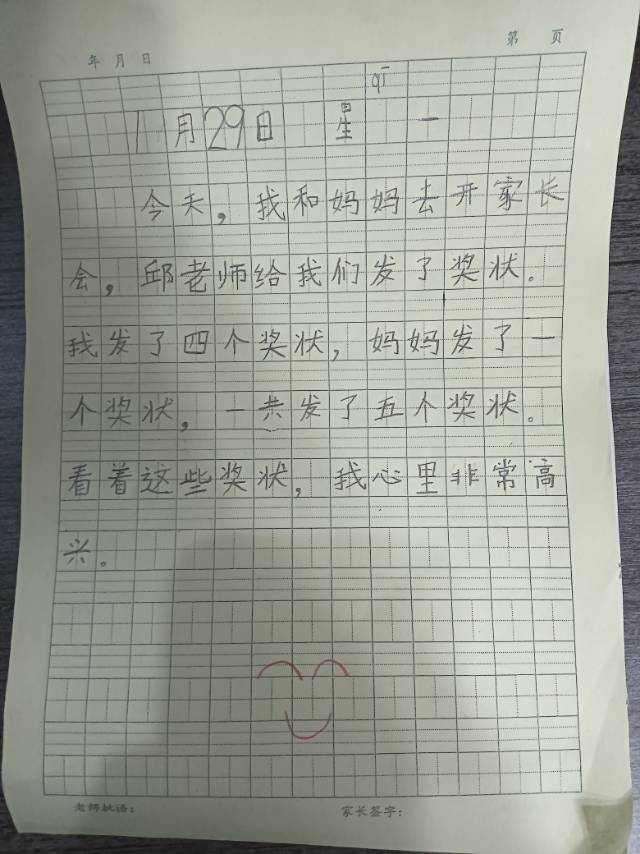 年 月 日
第 页
qī
11月29日 星 一
今天，我和妈妈去开家长
会，邱老师给我们发了奖状。
我发了四个奖状，妈妈发了一
个奖状，一共发了五个奖状。
看着这些奖状，我心里非常高
兴。
老师批语：
家长签字：